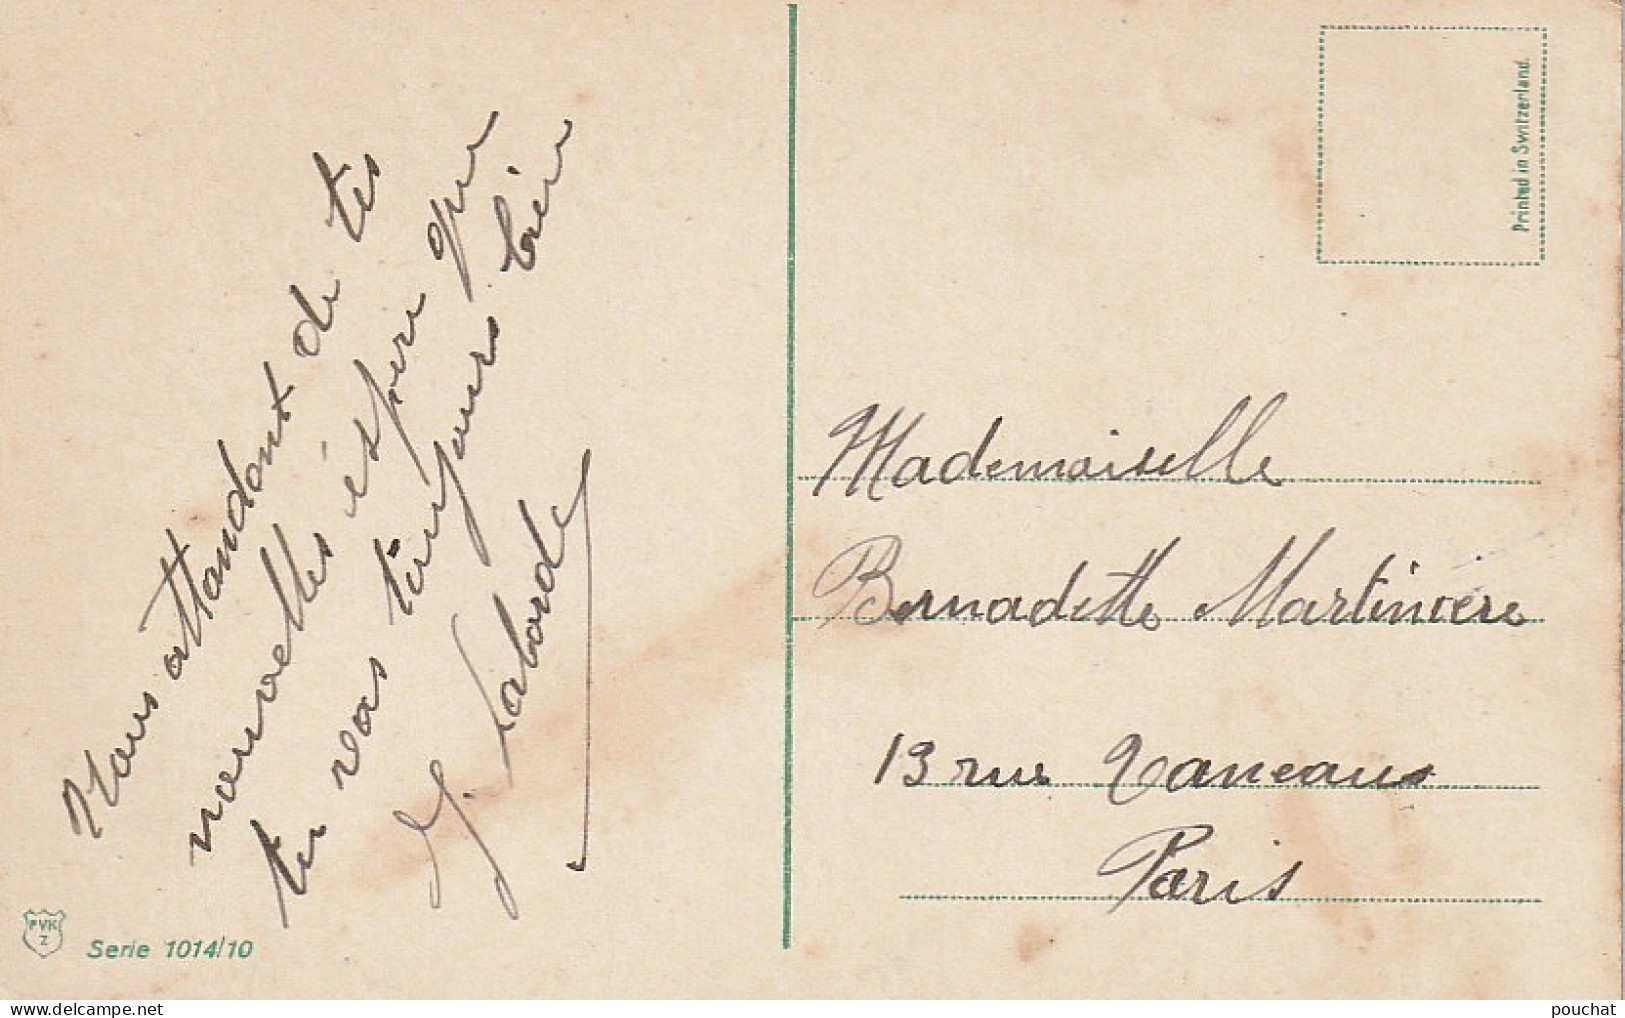 Nous attandont de tes
nouvelles éspere que
tu vas toujours bien
J. Laborde
PVK
Z
Serie 1014/10
Printed in Switzerland.
Mademoiselle
Bernadette Martinière
13 rue Vaneaus
Paris
delcampe.net
pouchat